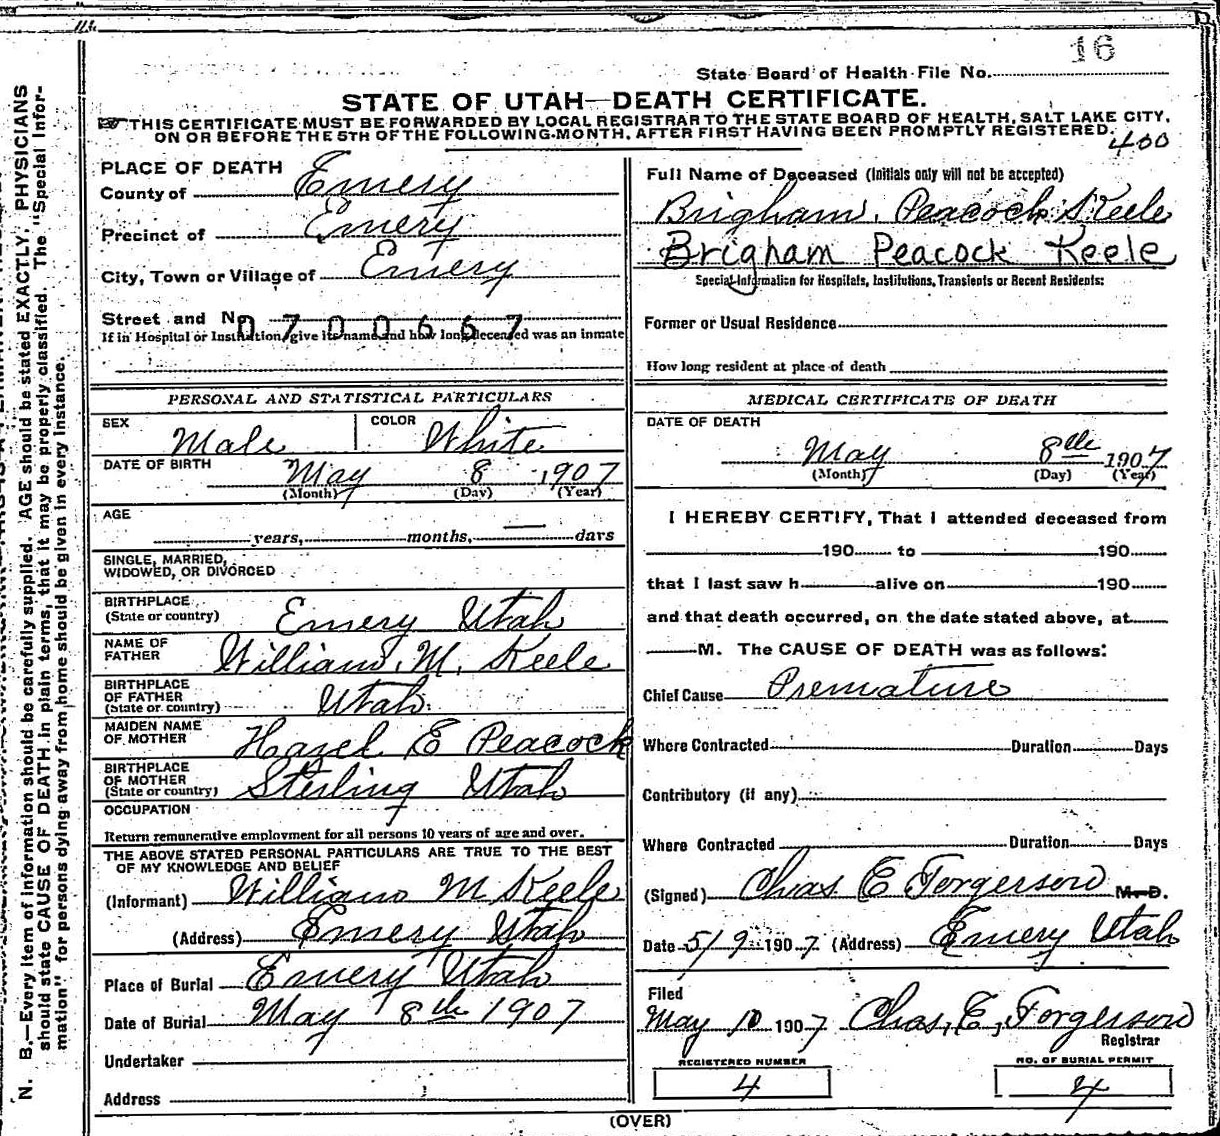 16
State Board of Health File No.
STATE OF UTAH—DEATH CERTIFICATE.
THIS CERTIFICATE MUST BE FORWARDED BY LOCAL REGISTRAR TO THE STATE BOARD OF HEALTH, SALT LAKE CITY,
ON OR BEFORE THE 5TH OF THE FOLLOWING MONTH, AFTER FIRST HAVING BEEN PROMPTLY REGISTERED.
400
PLACE OF DEATH
County of Emery
Precinct of Emery
City, Town or Village of Emery
Street and N
0700667
If in Hospital or Institution, give its name and how long deceased was an inmate
Full Name of Deceased (Initials only will not be accepted)
Brigham Peacock Keele
Brigham Peacock Keele
Special Information for Hospitals, Institutions, Transients or Recent Residents:
Former or Usual Residence
How long resident at place of death
PERSONAL AND STATISTICAL PARTICULARS
SEX Male COLOR White
DATE OF BIRTH May 8 1907
(Month) (Day) (Year)
AGE
years, months, — days
SINGLE, MARRIED,
WIDOWED, OR DIVORCED
BIRTHPLACE
(State or country) Emery Utah
NAME OF
FATHER William M. Keele
BIRTHPLACE
OF FATHER
(State or country) Utah
MAIDEN NAME
OF MOTHER Hazel E Peacock
BIRTHPLACE
OF MOTHER
(State or country) Sterling Utah
OCCUPATION
Return remunerative employment for all persons 10 years of age and over.
THE ABOVE STATED PERSONAL PARTICULARS ARE TRUE TO THE BEST
OF MY KNOWLEDGE AND BELIEF
(Informant) William M Keele
(Address) Emery Utah
Place of Burial Emery Utah
Date of Burial May 8th 1907
Undertaker
Address
MEDICAL CERTIFICATE OF DEATH
DATE OF DEATH
May 8th 1907
(Month) (Day) (Year)
I HEREBY CERTIFY, That I attended deceased from
190 to 190
that I last saw h alive on 190
and that death occurred, on the date stated above, at
M. The CAUSE OF DEATH was as follows:
Chief Cause Premature
Where Contracted Duration Days
Contributory (if any)
Where Contracted Duration Days
(Signed) Chas E Torgerson M. D.
Date 5/9 1907 (Address) Emery Utah
Filed
May 10 1907 Chas, E, Torgerson
Registrar
REGISTERED NUMBER
4
NO. OF BURIAL PERMIT
4
(OVER)
N. B.—Every item of information should be carefully supplied. AGE should be stated EXACTLY. PHYSICIANS
should state CAUSE OF DEATH in plain terms, that it may be properly classified. The "Special Infor-
mation" for persons dying away from home should be given in every instance.